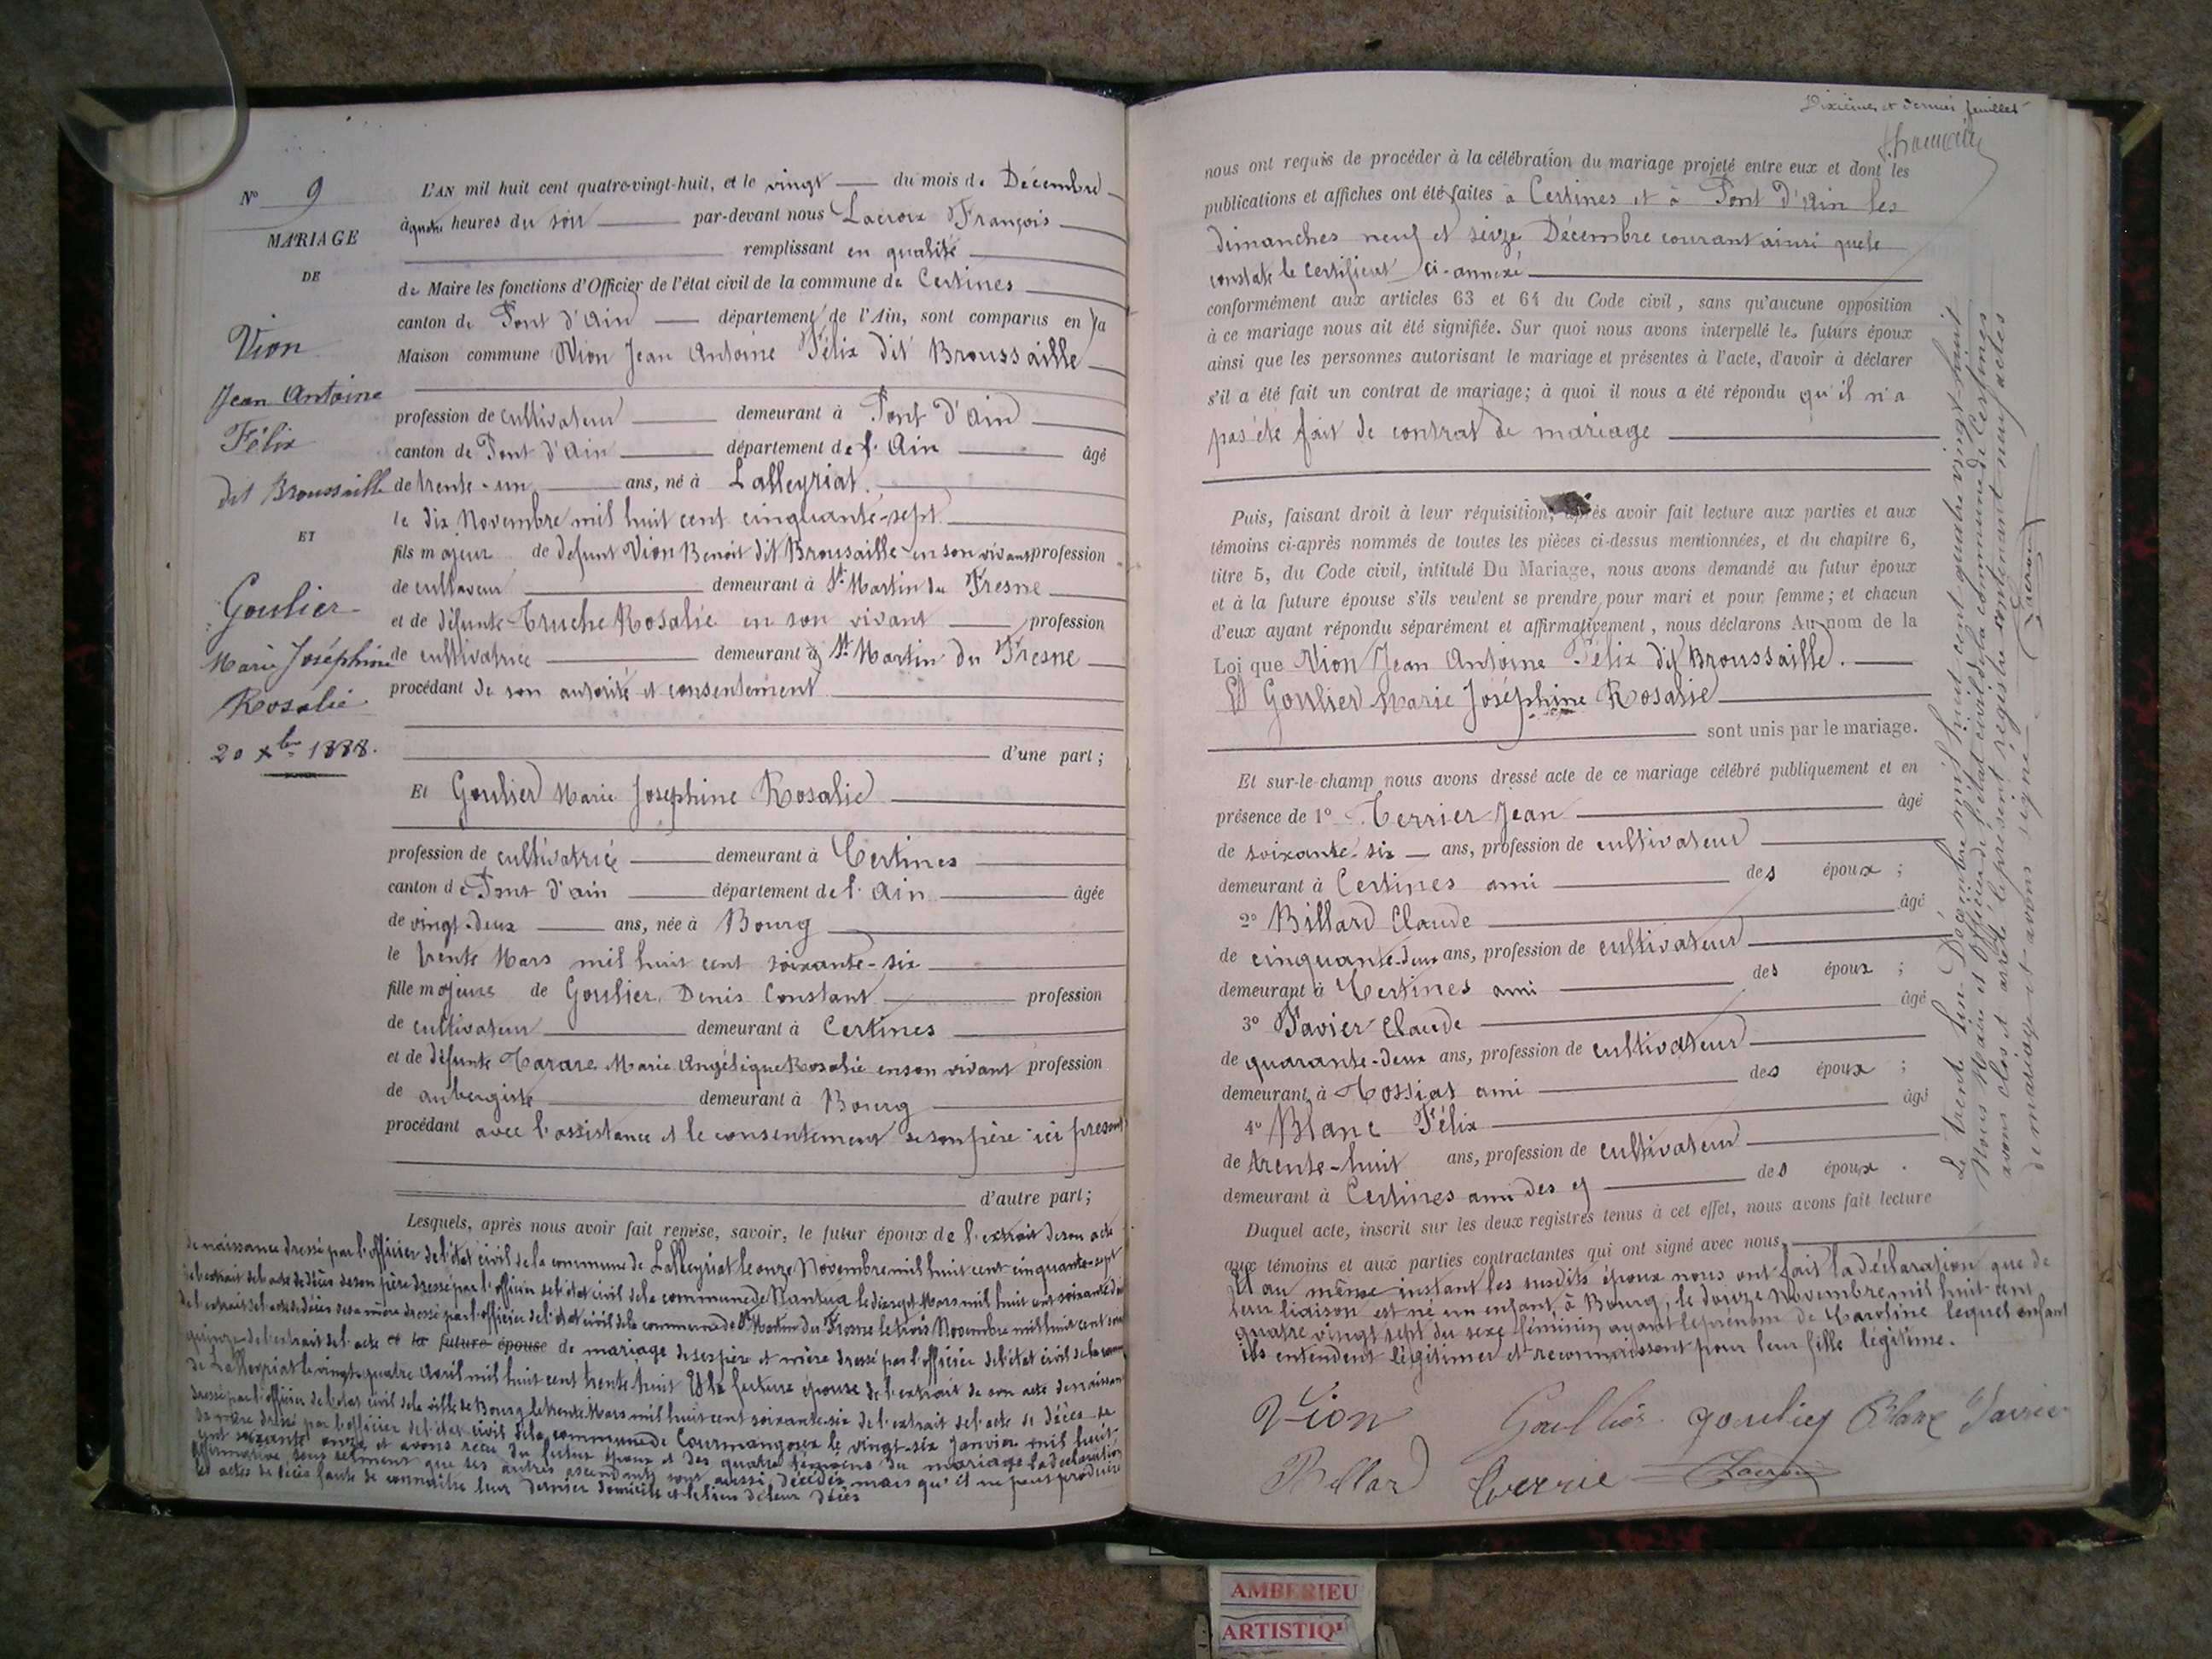 N° 9
MARIAGE
DE
Vion
Jean Antoine
Félix
dit Broussaille
ET
Goulier
Marie Joséphine
Rosalie
20 Xbre 1888.
L'AN mil huit cent quatre-vingt-huit, et le vingt du mois de Décembre
à quatre heures du soir par-devant nous Lacroix François
remplissant en qualité
de Maire les fonctions d'Officier de l'état civil de la commune de Certines
canton de Pont d'Ain département de l'Ain, sont comparus en la
Maison commune Vion Jean Antoine Félix dit Broussaille
profession de cultivateur demeurant à Pont d'Ain
canton de Pont d'Ain département de l'Ain âgé
de trente-un ans, né à Lalleyriat.
le dix Novembre mil huit cent cinquante-sept
fils majeur de defunt Vion Benoît dit Broussaille en son vivant profession
de cultiveur demeurant à St Martin du Fresne
et de défunte Truche Rosalie en son vivant profession
de cultivatrice demeurant à St Martin du Fresne
procédant de son autorité et consentement
d'une part;
Et Goulier Marie Joséphine Rosalie
profession de cultivatrice demeurant à Certines
canton de Pont d'ain département de l'Ain âgée
de vingt-deux ans, née à Bourg
le trente Mars mil huit cent soixante-six
fille majeure de Goulier Denis Constant profession
de cultivateur demeurant à Certines
et de défunte Tarare Marie Angélique Rosalie en son vivant profession
de aubergiste demeurant à Bourg
procédant avec l'assistance et le consentement de son père ici présent
d'autre part;
Lesquels, après nous avoir fait remise, savoir, le futur époux de l'extrait de son acte
de naissance dressé par l'officier de l'état civil de la commune de Lalleyriat le onze Novembre mil huit cent cinquante-sept
de l'extrait de l'acte de décès de son père dressé par l'officier de l'état civil de la commune de Nantua le dix sept Mars mil huit cent soixante dix
de l'extrait de l'acte de décès de sa mère dressé par l'officier de l'état civil de la commune de St Martin du Fresne le trois Novembre mil huit cent
quinze de l'extrait de l'acte et la future épouse de mariage de ses père et mère dressé par l'officier de l'état civil de la
de Lalleyriat le vingt-quatre avril mil huit cent trente huit Et la future épouse de l'extrait de son acte de naissance
dressé par l'officier de l'état civil de la ville de Bourg le trente Mars mil huit cent soixante-six de l'extrait de l'acte de décès de
sa mère dressé par l'officier de l'état civil de la commune de Courmangoux le vingt-six Janvier mil huit
cent soixante onze et avons reçu du futur époux et des quatre témoins du mariage la déclaration
affirmative sous serment que ses autres ascendants sont aussi décédés mais qu'il ne peut produire
les actes de décès faute de connaître leur dernier domicile et le lieu de leur décès
Dixième et dernier feuillet
nous ont requis de procéder à la célébration du mariage projeté entre eux et dont les
publications et affiches ont été faites à Certines et à Pont d'Ain les
dimanches neuf et seize Décembre courant ainsi que le
constate le certificat ci-annexé
conformément aux articles 63 et 64 du Code civil, sans qu'aucune opposition
à ce mariage nous ait été signifiée. Sur quoi nous avons interpellé les futurs époux
ainsi que les personnes autorisant le mariage et présentes à l'acte, d'avoir à déclarer
s'il a été fait un contrat de mariage; à quoi il nous a été répondu qu'il n'a
pas été fait de contrat de mariage
Puis, faisant droit à leur réquisition, après avoir fait lecture aux parties et aux
témoins ci-après nommés de toutes les pièces ci-dessus mentionnées, et du chapitre 6,
titre 5, du Code civil, intitulé Du Mariage, nous avons demandé au futur époux
et à la future épouse s'ils veulent se prendre pour mari et pour femme; et chacun
d'eux ayant répondu séparément et affirmativement, nous déclarons Au nom de la
Loi que Vion Jean Antoine Félix dit Broussaille.
Et Goulier Marie Joséphine Rosalie
sont unis par le mariage.
Et sur-le-champ nous avons dressé acte de ce mariage célébré publiquement et en
présence de 1° Terrier Jean âgé
de soixante-six ans, profession de cultivateur
demeurant à Certines ami des époux;
2° Billard Claude âgé
de cinquante-deux ans, profession de cultivateur
demeurant à Certines ami des époux;
3° Favier Claude âgé
de quarante-deux ans, profession de cultivateur
demeurant à Tossiat ami des époux;
4° Blanc Félix âgé
de trente-huit ans, profession de cultivateur
demeurant à Certines ami des des époux.
Duquel acte, inscrit sur les deux registres tenus à cet effet, nous avons fait lecture
aux témoins et aux parties contractantes qui ont signé avec nous.
Et au même instant les susdits époux nous ont fait la déclaration que de
leur liaison est né un enfant à Bourg, le douze Novembre mil huit-cent
quatre vingt sept du sexe féminin ayant le prénom de Caroline lequel enfant
ils entendent légitimer et reconnaissent pour leur fille légitime.
Vion Goullier goulier Blanc Favier
Billard Terrie Lacroix
Le trente un Décembre mil huit cent quatre vingt-huit
Nous Maire et Officier de l'état civil de la commune de Certines
avons clos et arrêté le présent registre contenant neuf actes
de mariage et avons signé.
Lacroix
AMBERIEU
ARTISTIQ